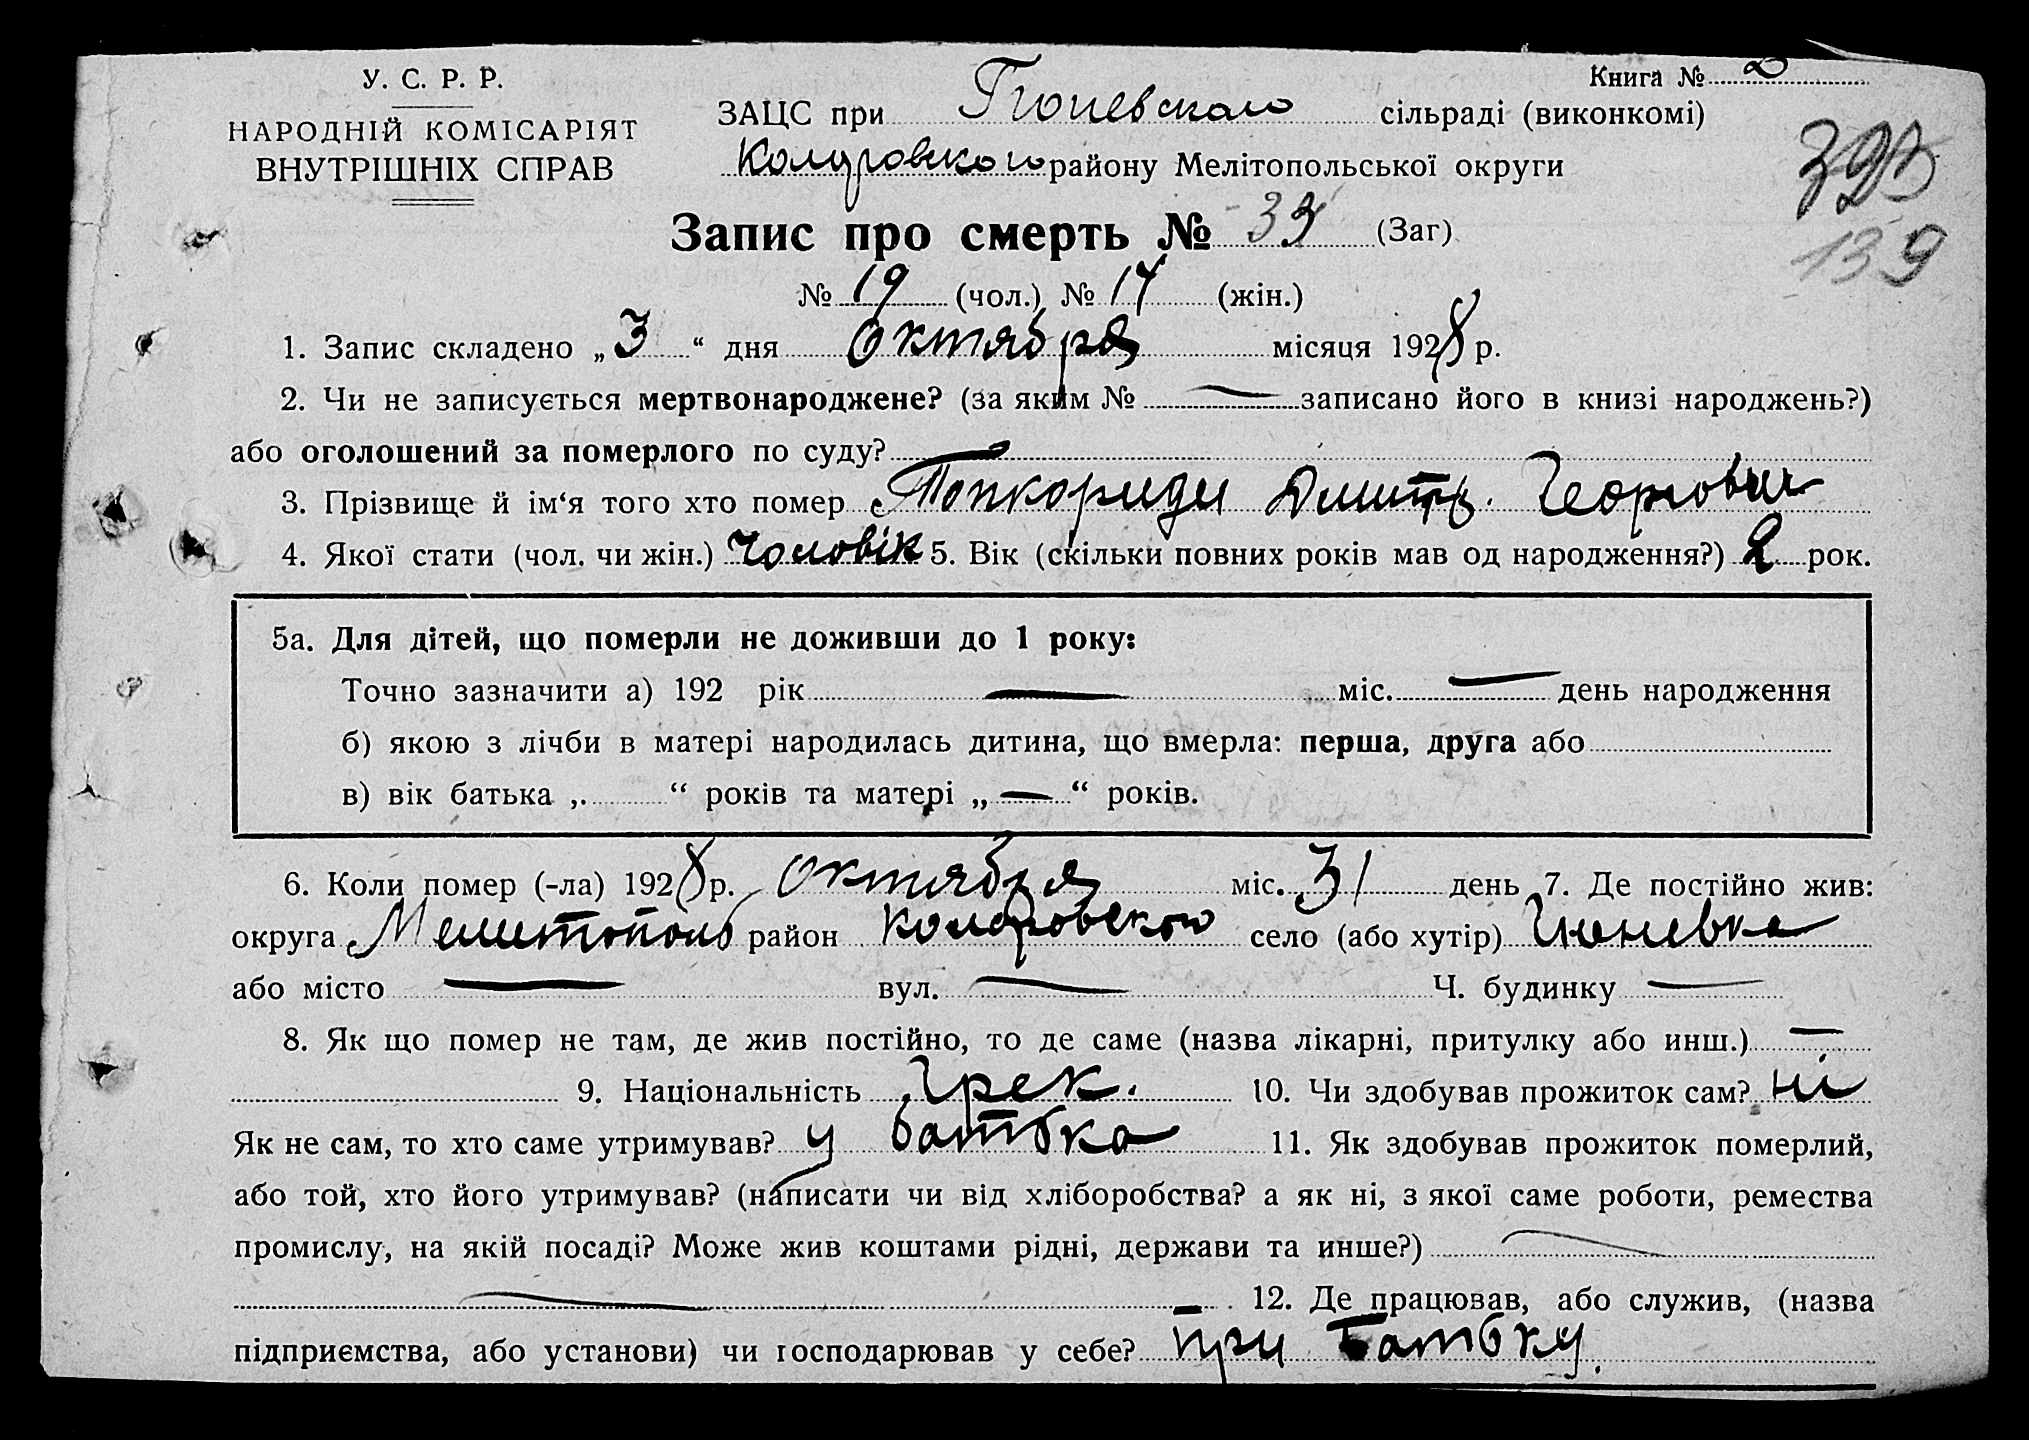 У. С. Р. Р.
НАРОДНІЙ КОМІСАРІЯТ
ВНУТРІШНІХ СПРАВ
Книга №
ЗАЦС при Гюневского сільраді (виконкомі)
Коларовского району Мелітопольської округи
139
Запис про смерть № 33 (Заг)
№ 19 (чол.) № 14 (жін.)
1. Запис складено „3“ дня Октября місяця 1928 р.
2. Чи не записується мертвонароджене? (за яким № — записано його в книзі народжень?)
або оголошений за померлого по суду?
3. Прізвище й ім‘я того хто помер Топкориди Дмитр. Георгович
4. Якої стати (чол. чи жін.) чоловік 5. Вік (скільки повних років мав од народження?) 2 рок.
5а. Для дітей, що померли не доживши до 1 року:
Точно зазначити а) 192 рік — міс. — день народження
б) якою з лічби в матері народилась дитина, що вмерла: перша, друга або
в) вік батька „ “ років та матері „—“ років.
6. Коли помер (-ла) 1928 р. октября міс. 31 день 7. Де постійно жив:
округа Мелитополь район Коларовского село (або хутір) Гюневка
або місто — вул. — Ч. будинку —
8. Як що помер не там, де жив постійно, то де саме (назва лікарні, притулку або инш.) —
9. Національність Грек. 10. Чи здобував прожиток сам? ні
Як не сам, то хто саме утримував? у батька 11. Як здобував прожиток померлий,
або той, хто його утримував? (написати чи від хліборобства? а як ні, з якої саме роботи, ремества
промислу, на якій посаді? Може жив коштами рідні, держави та инше?) —
— 12. Де працював, або служив, (назва
підприємства, або установи) чи господарював у себе? при батьку.